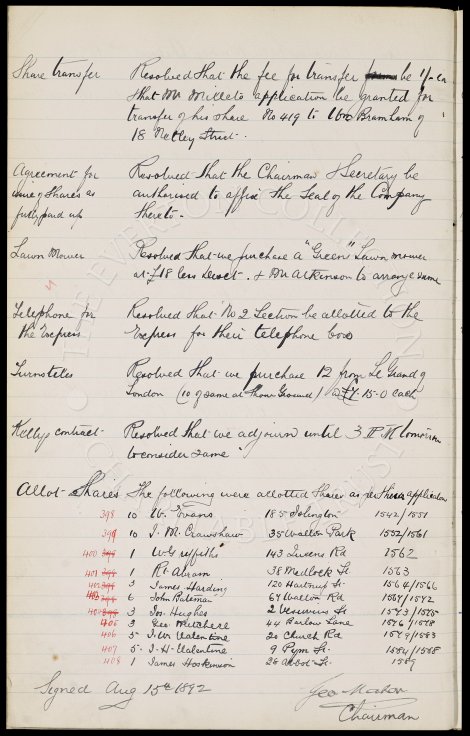 Share transfer Resolved that the fee for transfer be 1/- ea
& that Mr Millets application be granted for
transfer of his share No 419 to Wm Bramham of
18 Netley Street.
Agreement for Resolved that the Chairman & Secretary be
issue of Shares as authorised to affix the Seal of the Company
fully paid up thereto.
Lawn Mower Resolved that we purchase a "Greens" Lawn mower
at £18 less Disct. & Mr Atkinson to arrange same
Telephone for Resolved that No 2 Section be allotted to the
the Express Express for their telephone box
Turnstiles Resolved that we purchase 12 from Le Grand of
London (10 of same at Show Ground) @ £7.15.0 each
Kellys contract Resolved that we adjourn until 3 P.M. tomorrow
to consider same
Allot Shares The following were allotted Shares as per their application
398 10 W. Evans 185 Islington 1542/1551
399 10 J. M. Crawshaw 35 Walton Park 1552/1561
400 1 W Griffiths 143 Queens Rd 1562
401 1 Rt Abram 38 Medlock St 1563
402 3 James Harding 120 Hartnup St 1564/1566
403 6 John Bateman 69 Walton Rd 1567/1572
404 3 Jos. Hughes 2 Vesuvius St 1573/1575
405 3 Geo. 44 Barlow Lane 1576/1578
406 5 J. W. Valentine 20 Church Rd 1579/1583
407 5 J. H. Valentine 9 Pym St 1584/1588
408 1 James Hoskinson 26 Abbot St 1589
Signed Aug 15th 1892 Geo Mahon
Chairman